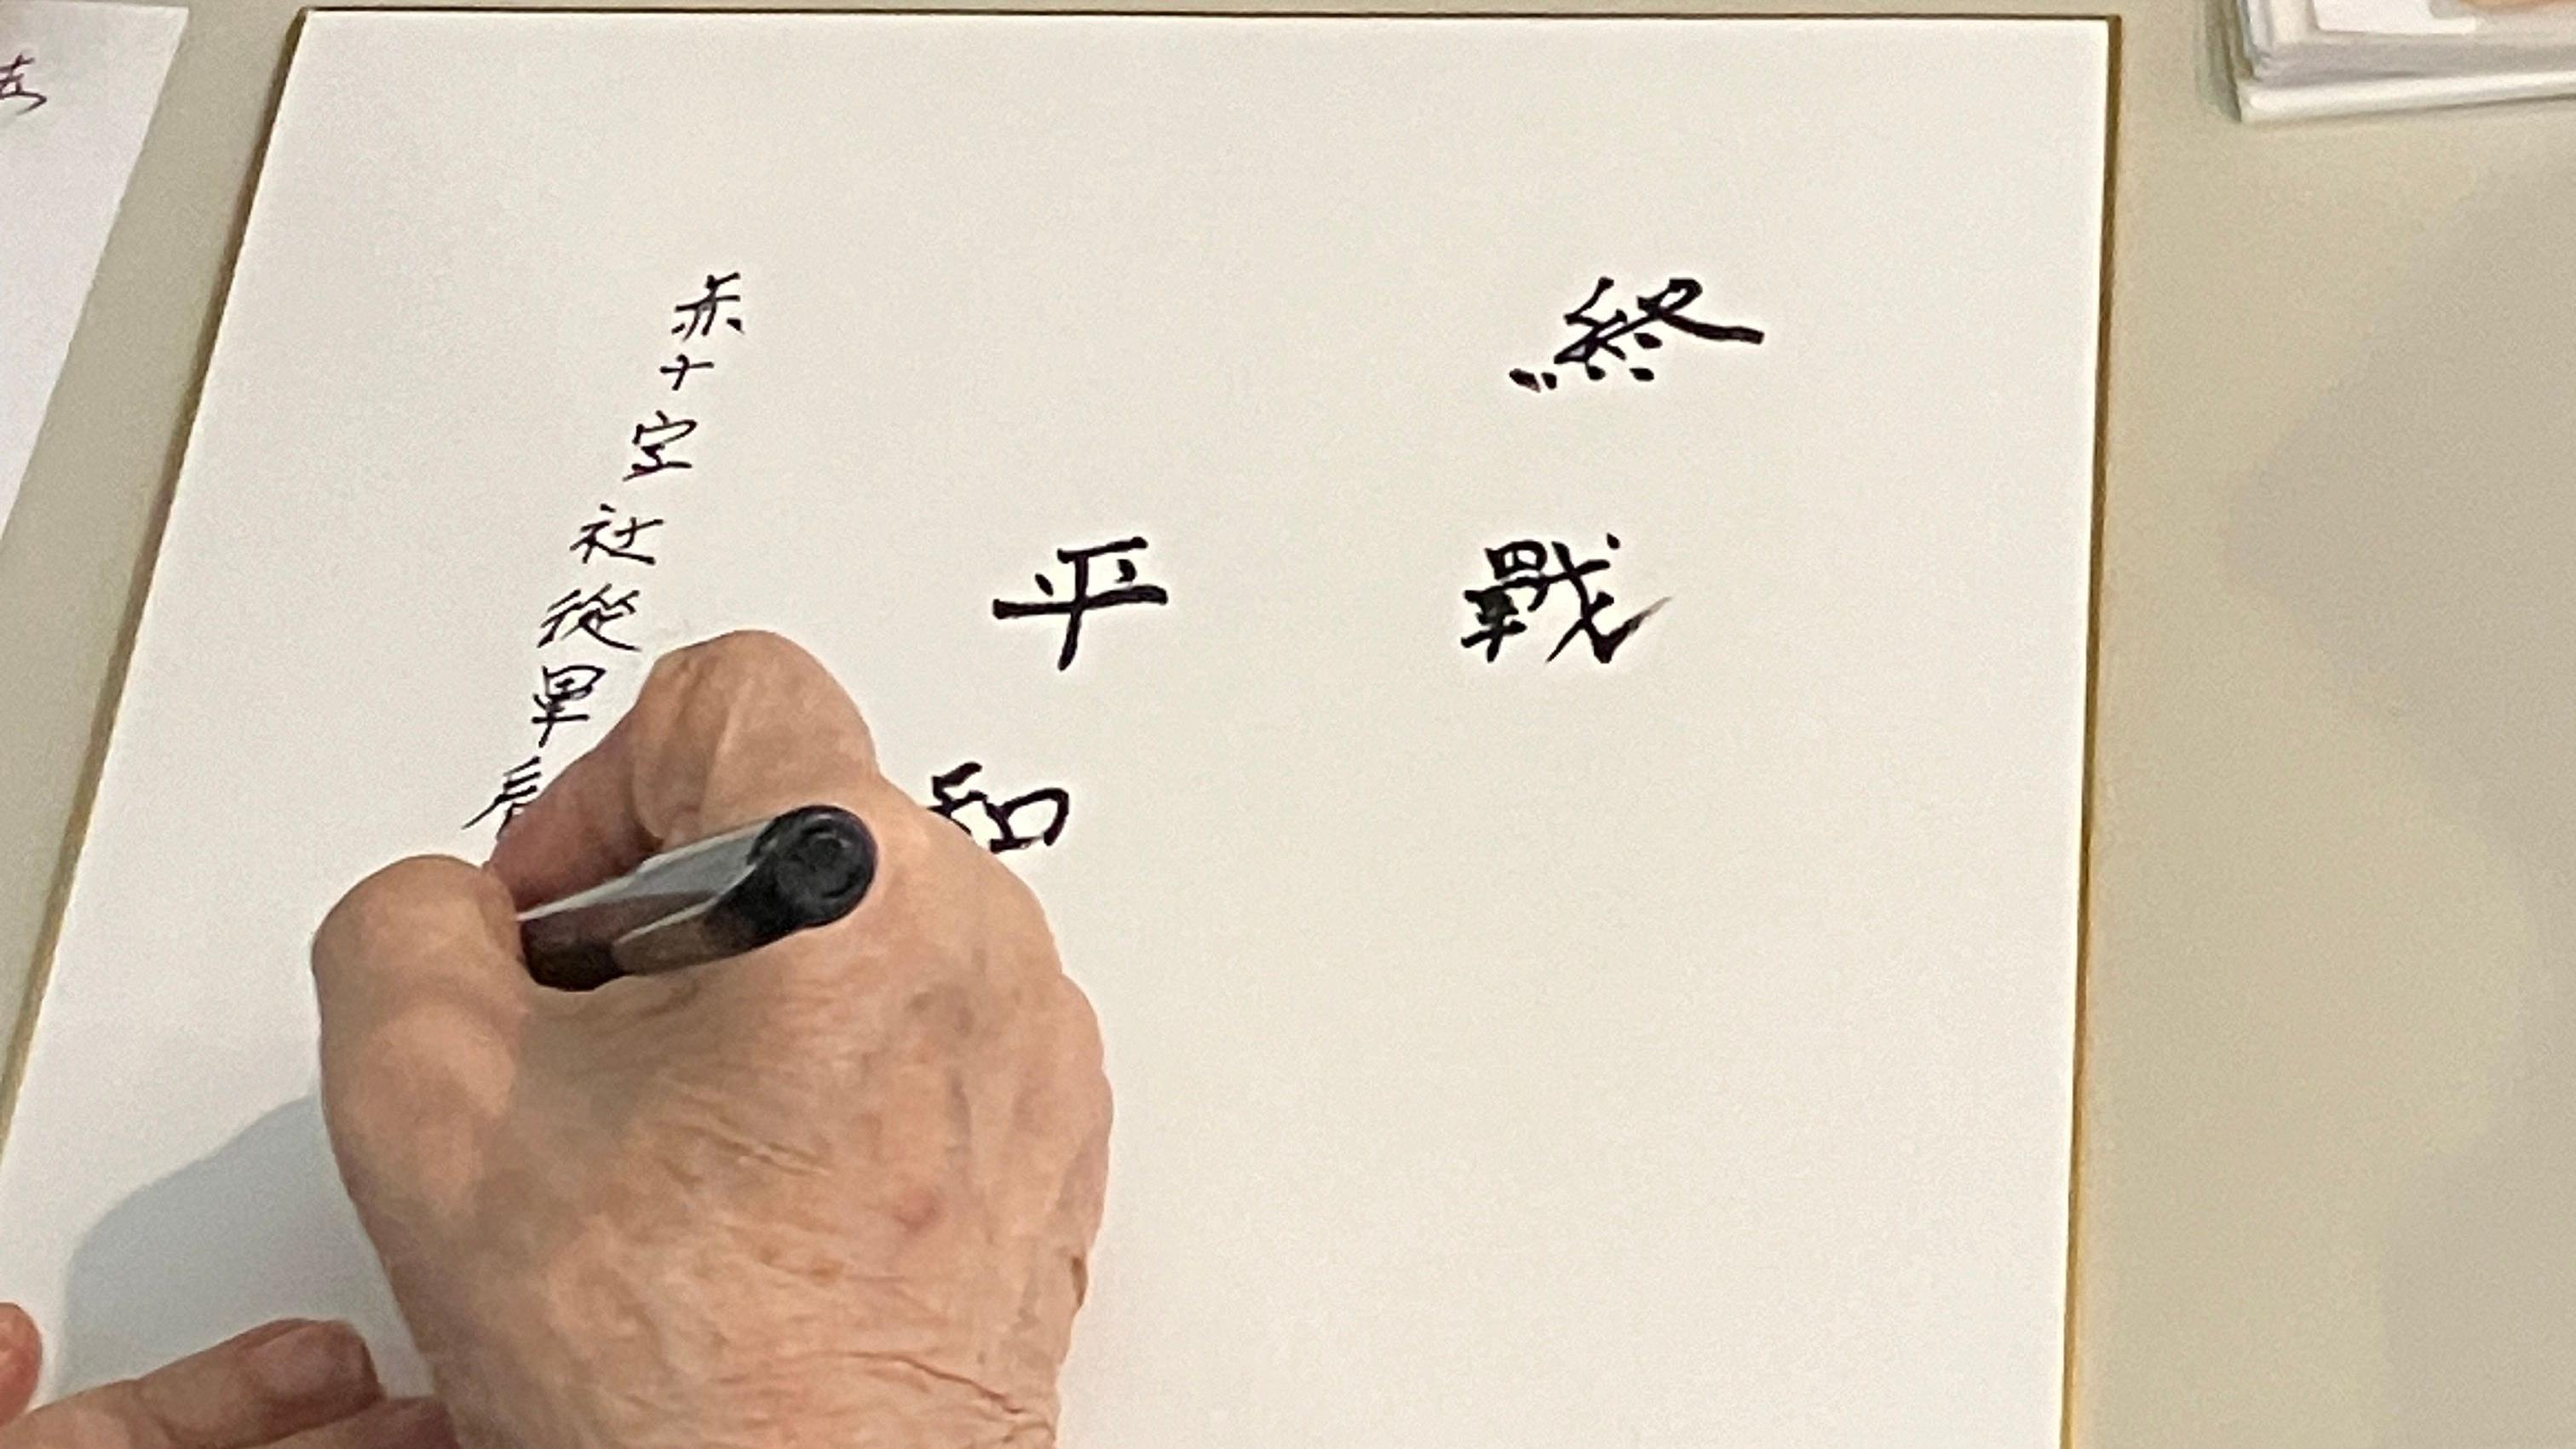 終戰
平和
赤十字社從軍看